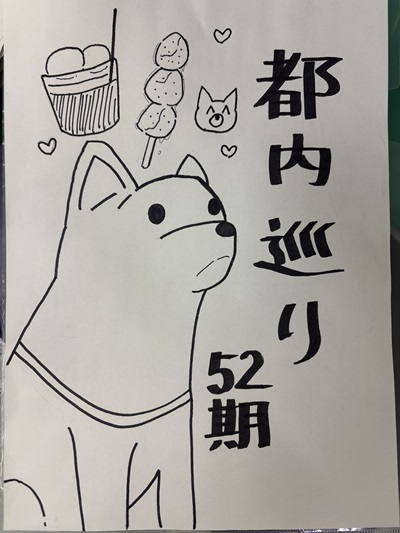 都内巡り
52期